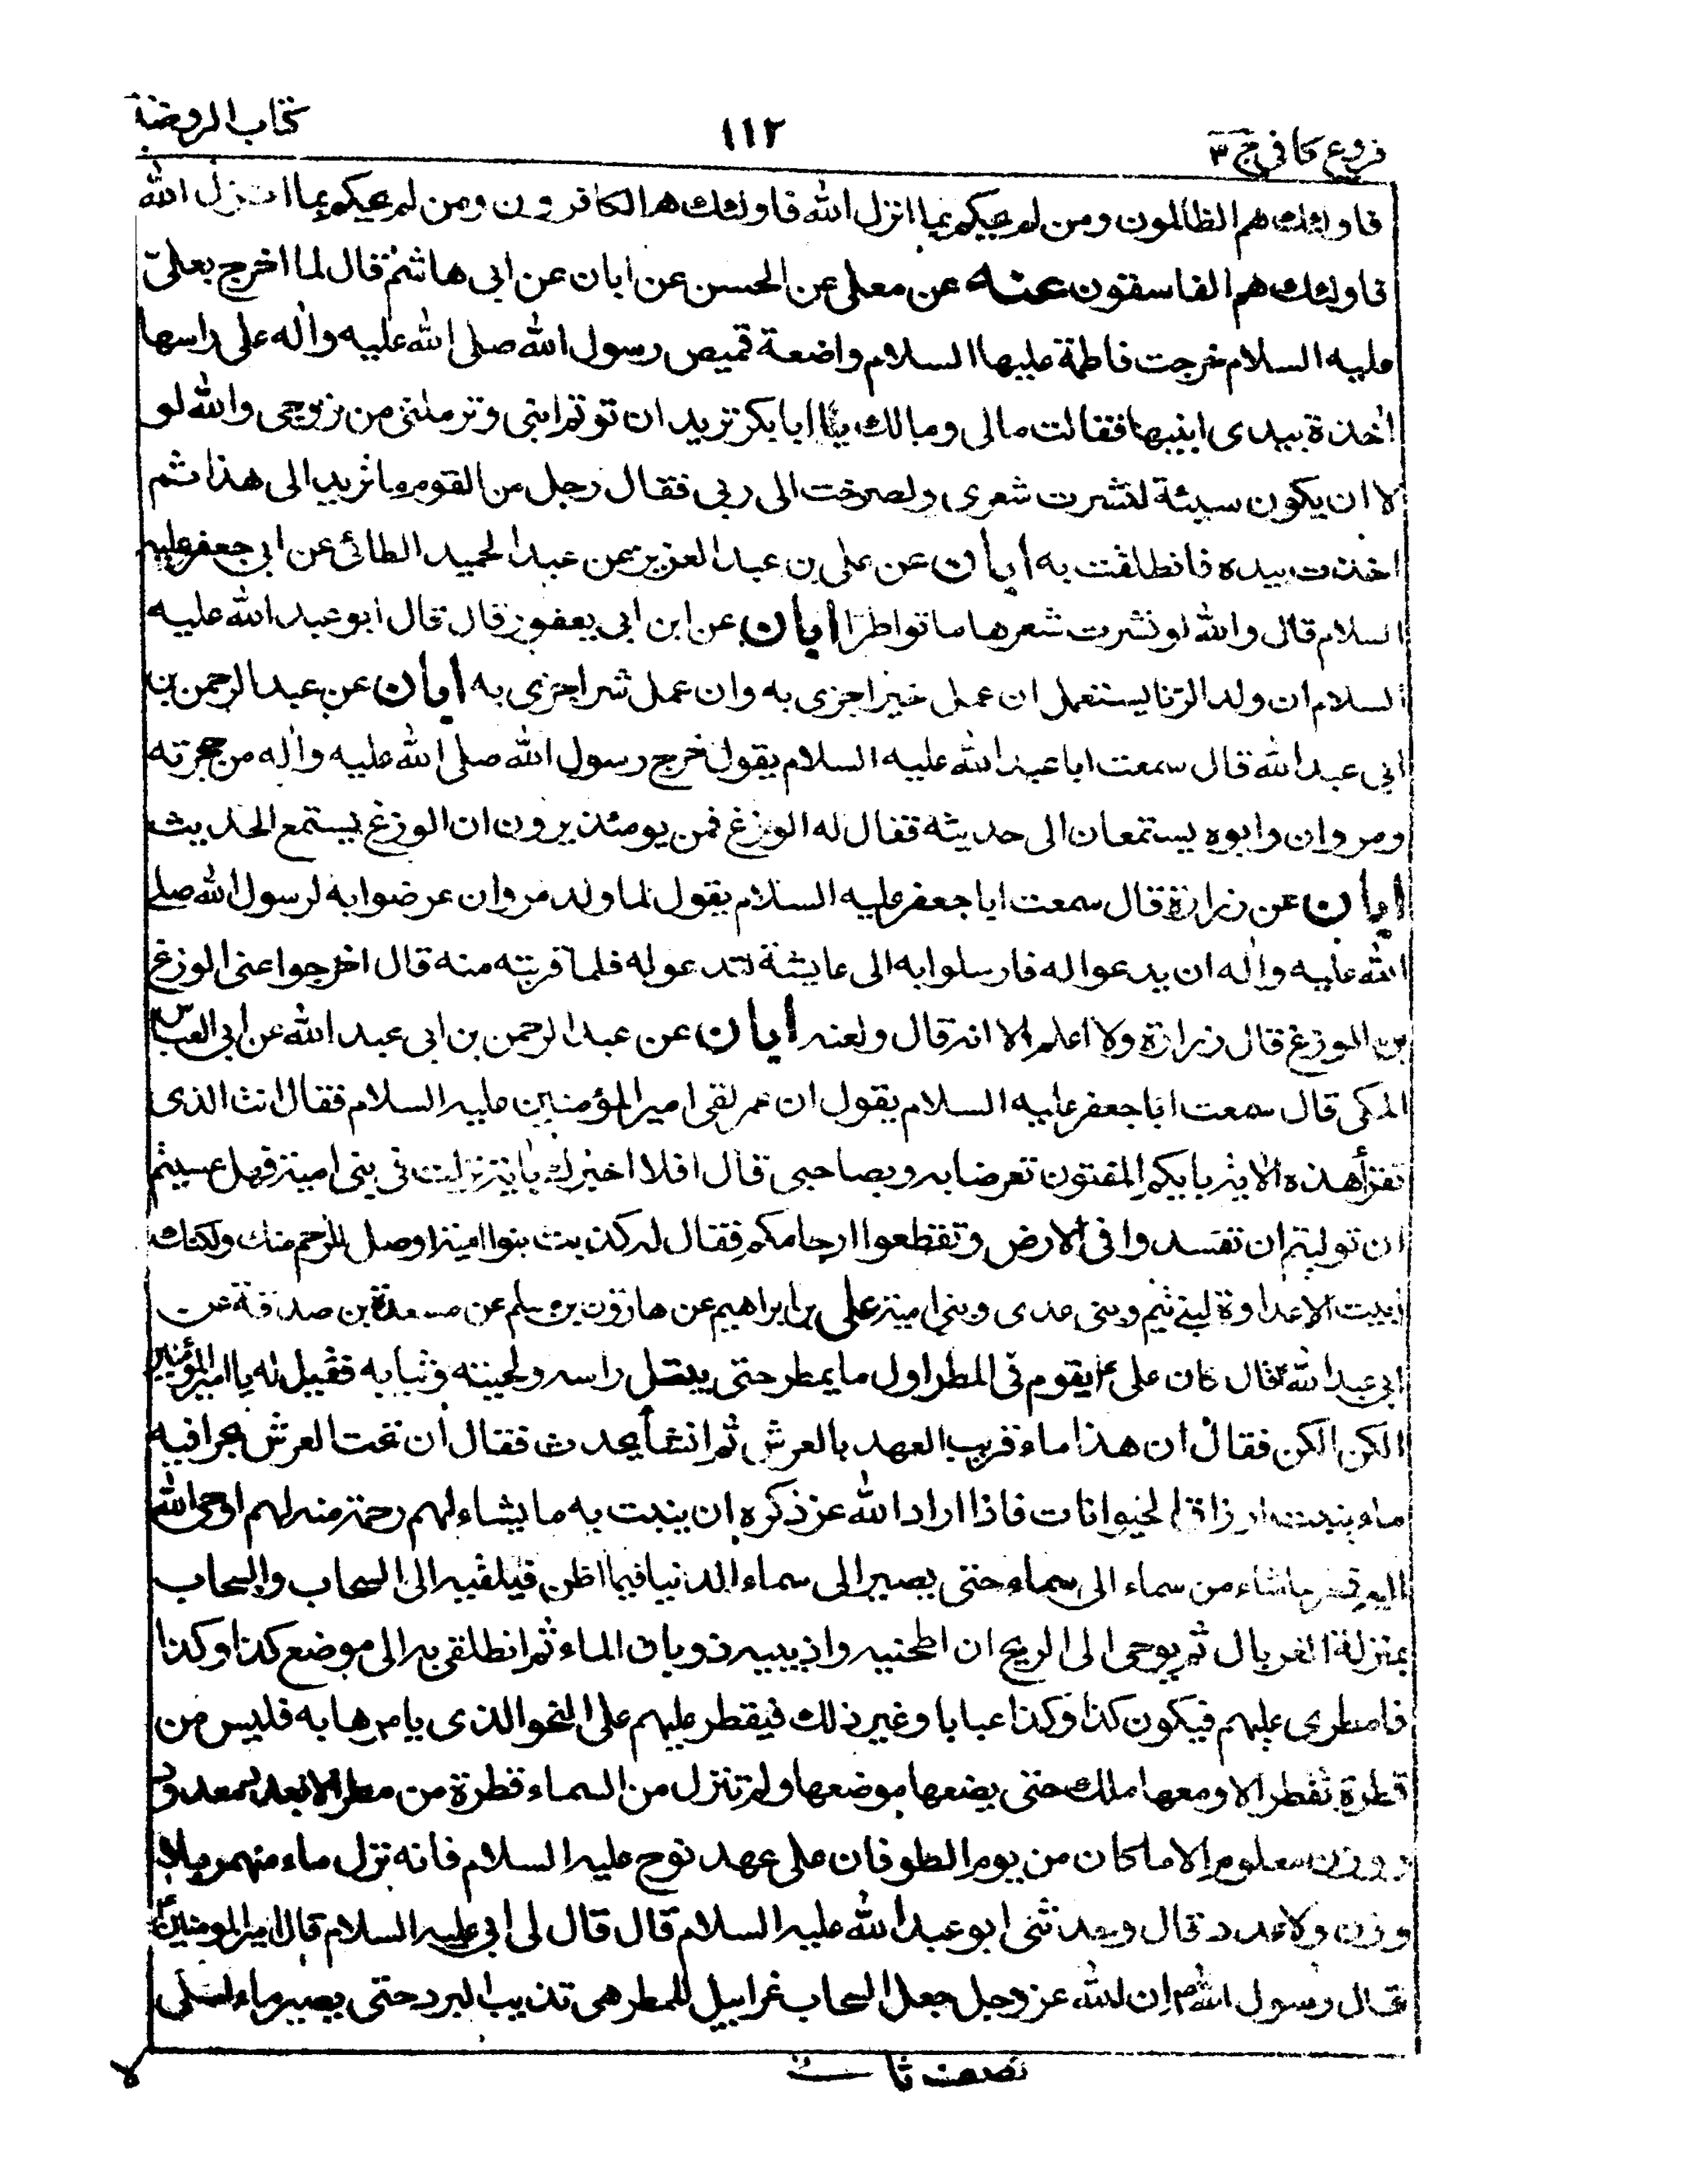 فروع كافى ج ٣
١١٢
كتاب الروضة
فاولئك هم الظالمون ومن لم يحكم بما انزل الله فاولئك هم الكافرون ومن لم يحكم بما انزل الله
فاولئك هم الفاسقون عنه عن معلى عن الحسن عن ابان عن ابى هاشم قال لما اخرج بعلىّ
عليه السلام خرجت فاطمة عليها السلام واضعة قميص رسول الله صلى الله عليه واٰله على راسها
اٰخذة بيدى ابنيها فقالت مالى ومالك يا ابا بكر تريد ان توتم ابنى وترملنى من زوجى والله لو
لا ان يكون سيئة لنشرت شعرى ولصرخت الى ربى فقال رجل من القوم ما تريد الى هذا ثم
اخذت بيده فانطلقت به ابان عن على بن عبد العزيز عن عبد الحميد الطائى عن ابى جعفر عليه
السلام قال والله لو نشرت شعرها ماتوا طرّا ابان عن ابن ابى يعفور قال قال ابو عبد الله عليه
السلام ان ولد الزنا يستعمل ان عمل خيرا جزى به وان عمل شرا جزى به ابان عن عبد الرحمن بن
ابى عبد الله قال سمعت ابا عبد الله عليه السلام يقول خرج رسول الله صلى الله عليه واٰله من حجرته
ومروان وابوه يستمعان الى حديثه فقال له الوزغ فمن يومئذ يرون ان الوزغ يستمع الحديث
ابان عن زرارة قال سمعت ابا جعفر عليه السلام يقول لما ولد مروان عرضوا به لرسول الله صلى
الله عليه واٰله ان يدعوا له فارسلوا به الى عايشة لتدعو له فلما قربته منه قال اخرجوا عنى الوزغ
بن الوزغ قال زرارة ولا اعلم الا انه قال ولعنه ابان عن عبد الرحمن بن ابى عبد الله عن ابى العباس
المكى قال سمعت ابا جعفر عليه السلام يقول ان عمر لقى امير المؤمنين عليه السلام فقال انت الذى
تقرأ هذه الاية بايكم المفتون تعرضا به وبصاحبى قال افلا اخبرك باية نزلت فى بنى امية فهل عسيتم
ان توليتم ان تفسدوا فى الارض وتقطعوا ارحامكم فقال له كذبت بنوا امية اوصل للرحم منك ولكنك
ابيت الا عداوة لبنى تيم وبنى عدى وبنى امية على بن ابراهيم عن هارون بن مسلم عن مسعدة بن صدقة عن
ابى عبد الله ع قال كان على ع يقوم فى المطر اول ما يمطر حتى يبتل راسه ولحيته وثيابه فقيل له يا امير المؤمنين
الكن الكن فقال ان هذا ماء قريب العهد بالعرش ثم انشأ يحدث فقال ان تحت العرش بحرا فيه
ماء ينبت ارزاق الحيوانات فاذا اراد الله عز ذكره ان ينبت به ما يشاء لهم رحمة منه لهم اوحى الله
اليه فمطر ما شاء من سماء الى سماء حتى يصير الى سماء الدنيا فيما اظن فيلقيه الى السحاب والسحاب
بمنزلة الغربال ثم يوحى الى الريح ان اطحنيه واذيبيه ذوبان الماء ثم انطلقى به الى موضع كذا وكذا
فامطرى عليهم فيكون كذا وكذا عبابا وغير ذلك فيقطر عليهم على النحو الذى يامرها به فليس من
قطرة تقطر الا ومعها ملك حتى يضعها موضعها ولم تنزل من السماء قطرة من مطر الا بعدد معدود
ووزن معلوم الا ما كان من يوم الطوفان على عهد نوح عليه السلام فانه نزل ماء منهمر بلا
وزن ولا عدد قال وحدثنى ابو عبد الله عليه السلام قال قال لى ابى عليه السلام قال امير المومنين ع
قال رسول الله ص ان لله عز وجل جعل السحاب غرابيل للمطر هى تذيب البرد حتى يصير ماء لكى
لا